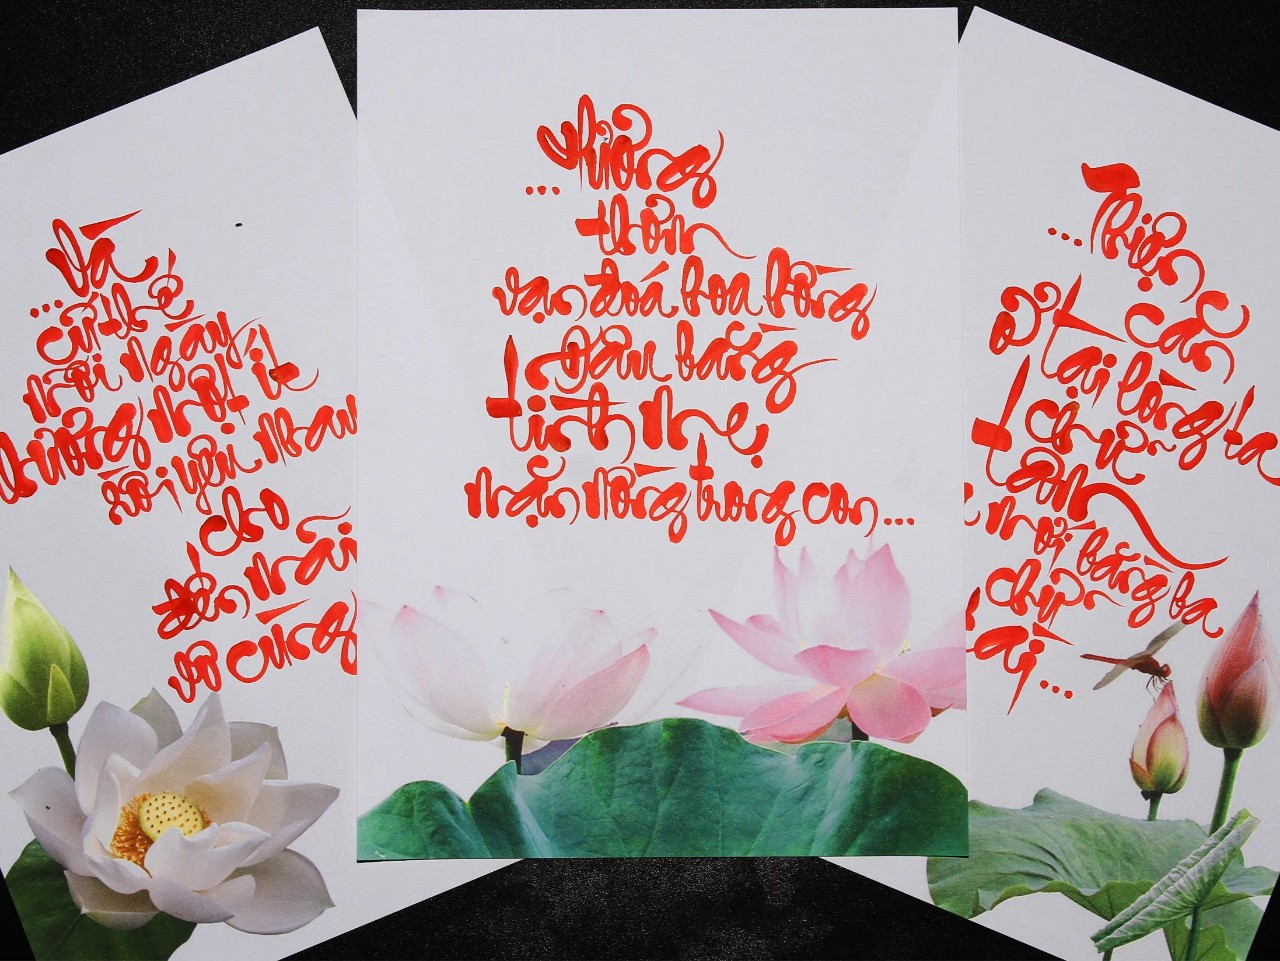 Và
... cứ thế
mỗi ngày
thương một ít
rồi yêu nhau
cho
đến mãi
vô cùng
... Hương
thơm
vạn đoá hoa hồng
đâu bằng
tình mẹ
mặn nồng trong con...
... Thiện
căn
ở tại lòng ta
chữ
tâm
mới bằng ba
chữ
tài...